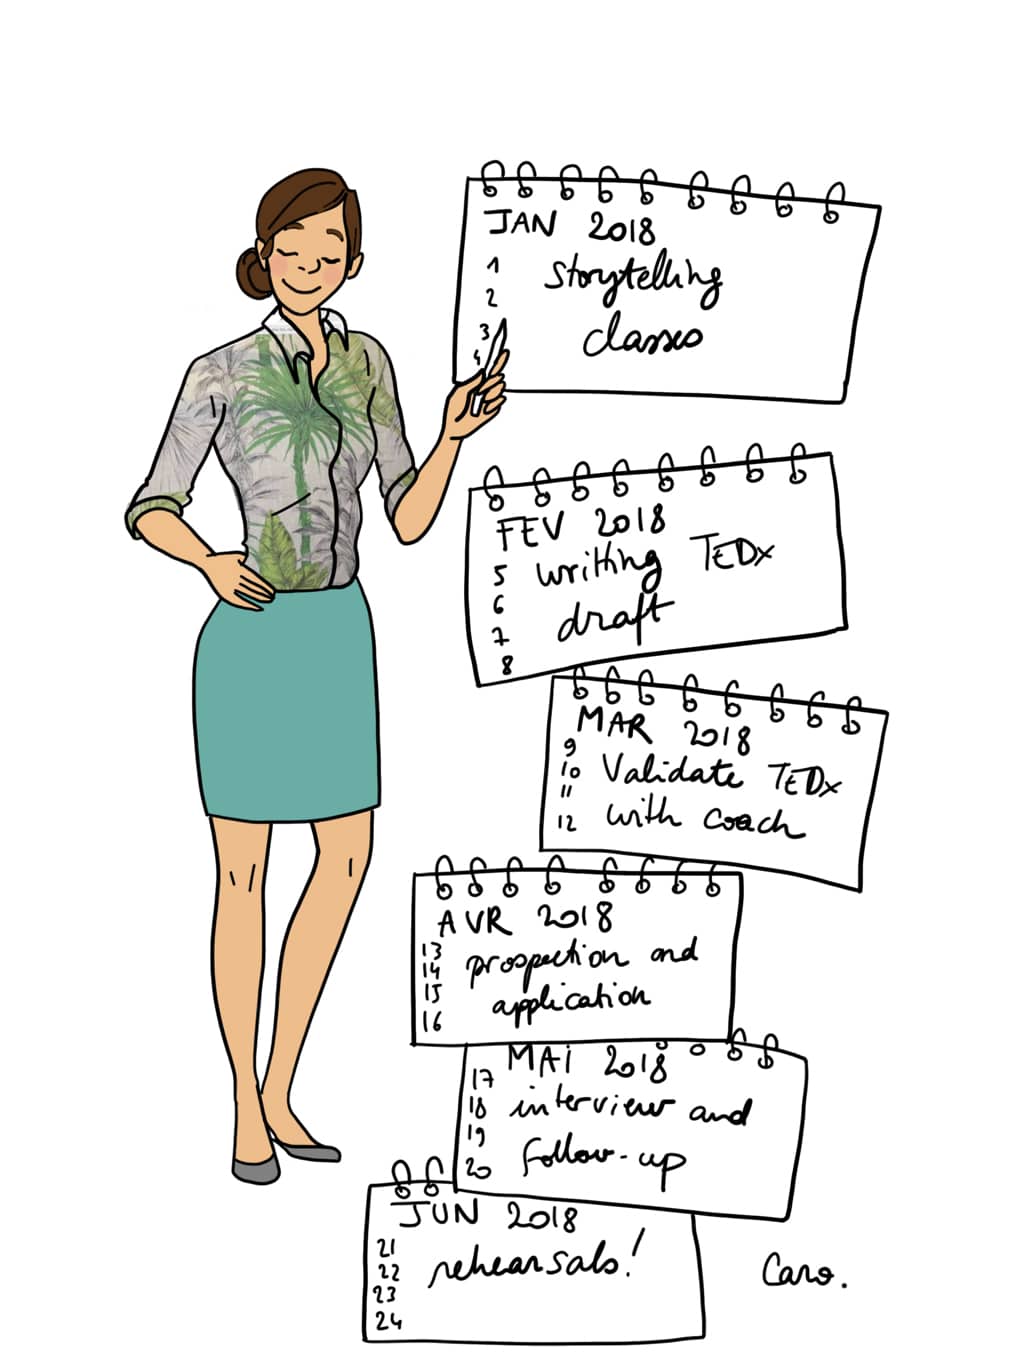 JAN 2018
1
storytelling
2
classes
3
4
FEV 2018
5 writing TEDx
6
draft
7
8
MAR 2018
9
10 Validate TEDx
11
12 with coach
AVR 2018
13
14 prospection and
15 application
16
MAI 2018
17
18 interview and
19
20 follow-up
JUN 2018
21
22 rehearsals!
23
24
Caro.